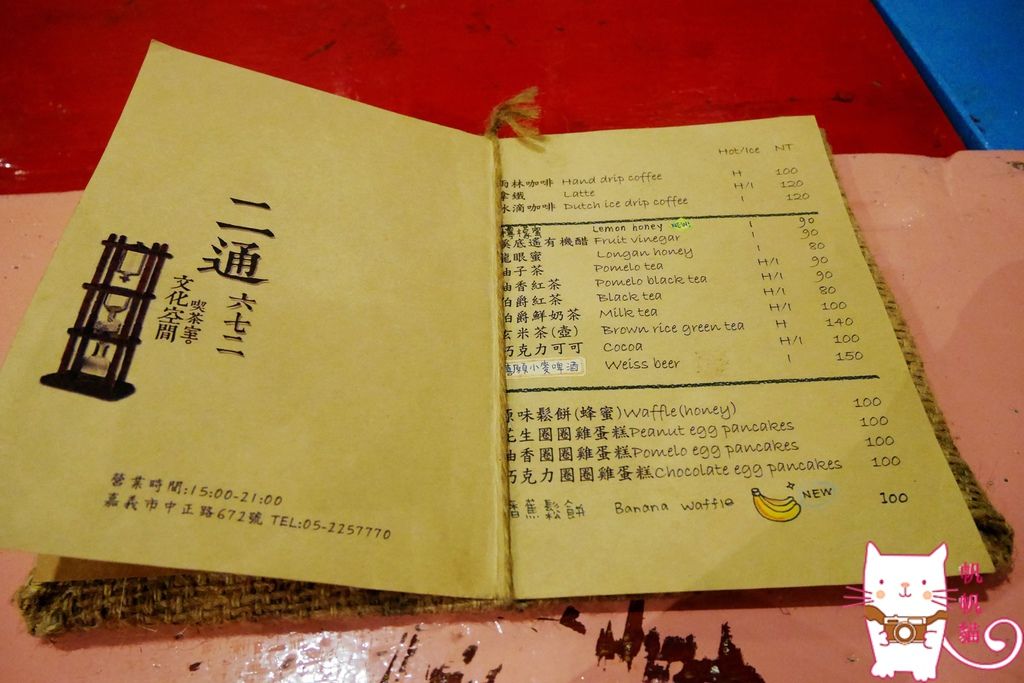 二通
六七二
喫茶室。
文化空間
營業時間:15:00-21:00
嘉義市中正路672號 TEL:05-2257770
Hot/Ice NT
雨林咖啡 Hand drip coffee H 100
拿鐵 Latte H/I 120
冰滴咖啡 Dutch ice drip coffee I 120
檸檬蜜 Lemon honey I 90
溪底遙有機醋 Fruit vinegar I 90
龍眼蜜 Longan honey I 80
柚子茶 Pomelo tea H/I 90
柚香紅茶 Pomelo black tea H/I 90
伯爵紅茶 Black tea H/I 80
伯爵鮮奶茶 Milk tea H/I 100
玄米茶(壺) Brown rice green tea H 140
巧克力可可 Cocoa H/I 100
喜願小麥啤酒 Weiss beer I 150
原味鬆餅(蜂蜜)Waffle(honey) 100
花生圈圈雞蛋糕Peanut egg pancakes 100
柚香圈圈雞蛋糕Pomelo egg pancakes 100
巧克力圈圈雞蛋糕Chocolate egg pancakes 100
香蕉鬆餅 Banana waffle NEW 100
帆帆貓